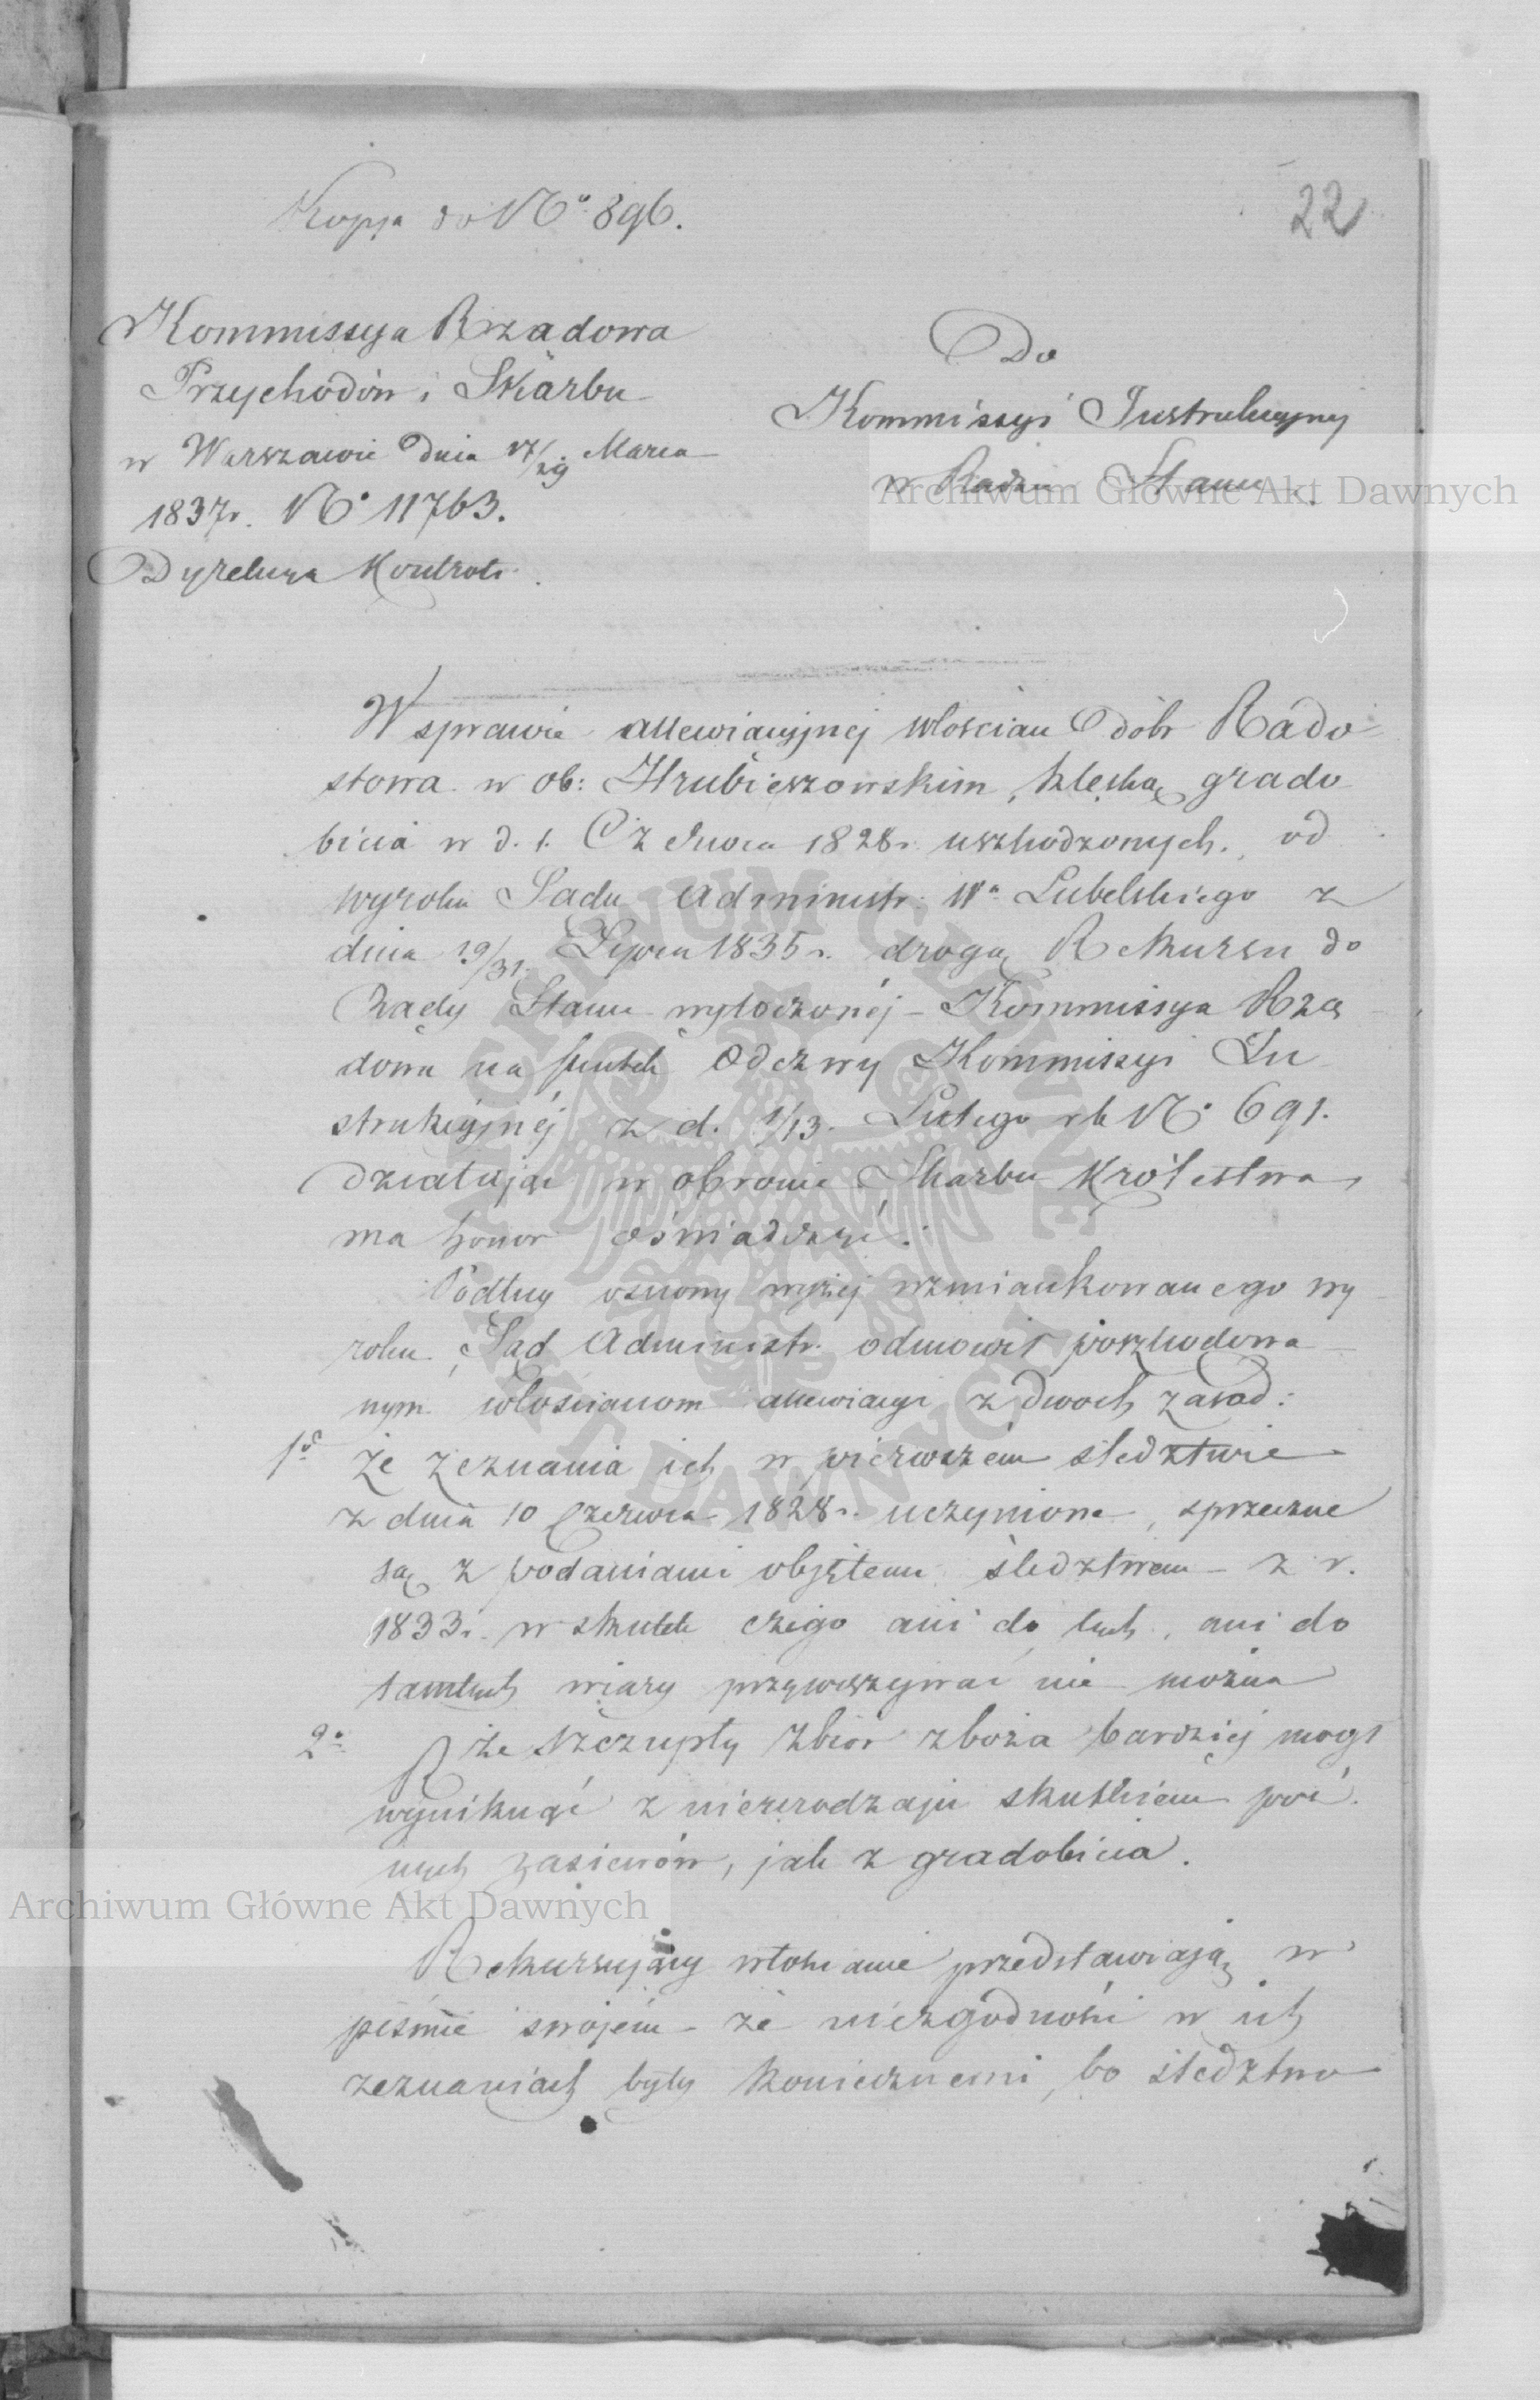 Kopja do No 896.
22
Kommissya Rządowa
Przychodów i Skarbu
w Warszawie dnia 17/29 Marca
1837r. No 11763.
Dyrekcya Kontroli.
Do
Kommissyi Instrukcyjnej
w Radzie Stanu.
Archiwum Główne Akt Dawnych
W sprawie allewiacyjnej włościan dóbr Rado
stowa w ob: Hrubieszowskim, klęską grado
bicia w d. 1. Czerwca 1828r. uszkodzonych, od
wyroku Sądu Administr: Wa Lubelskiego z
dnia 19/31. Lipca 1835r. drogą Rekursu do
Rady Stanu wytoczonéj – Kommissya Rzą
dowa na skutek Odezwy Kommissyi In
strukcyjnéj z d. 1/13. Lutego rb No 691.
działając w obronie Skarbu Królestwa,
ma honor oświadczyć.
Podług osnowy wyżej wzmiankowanego wy
roku Sąd Administr. odmówił poszkodowa
nym włościanom allewiacyi z dwoch zasad:
1o że zeznania ich w pierwszém śledztwie
z dnia 10 Czerwca 1828r. uczynione, sprzeczne
są z podaniami objętemi śledztwem z r.
1833r. w skutek czego ani do tych, ani do
tamtych wiary przywiązywać nie można
2o że szczupły zbior zboża bardziej mógł
wyniknąć z nieurodzaju skutkiem póź
nych zasiewów, jak z gradobicia.
Archiwum Główne Akt Dawnych
Rekursujący włościanie przedstawiają w
piśmie swojém – że niezgodności w ich
zeznaniach były koniecznemi, bo śledztwo
ARCHIWUM GŁÓWNE AKT DAWNYCH